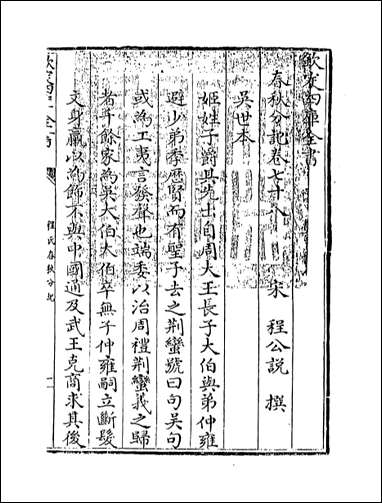 欽定四庫全書
春秋分記卷七十八
宋 程公說 撰
吳世本
姬姓子爵其先出自周大王長子大伯與弟仲雍
避少弟季歷賢而有聖子去之荆蠻號曰句吳句
或為工夷言發聲也端委以治周禮荆蠻義之歸
者千餘家為吳大伯大伯卒無子仲雍嗣立斷髮
文身臝以為飾不與中國通及武王克商求其後
欽定四庫全書
程氏春秋分記
一